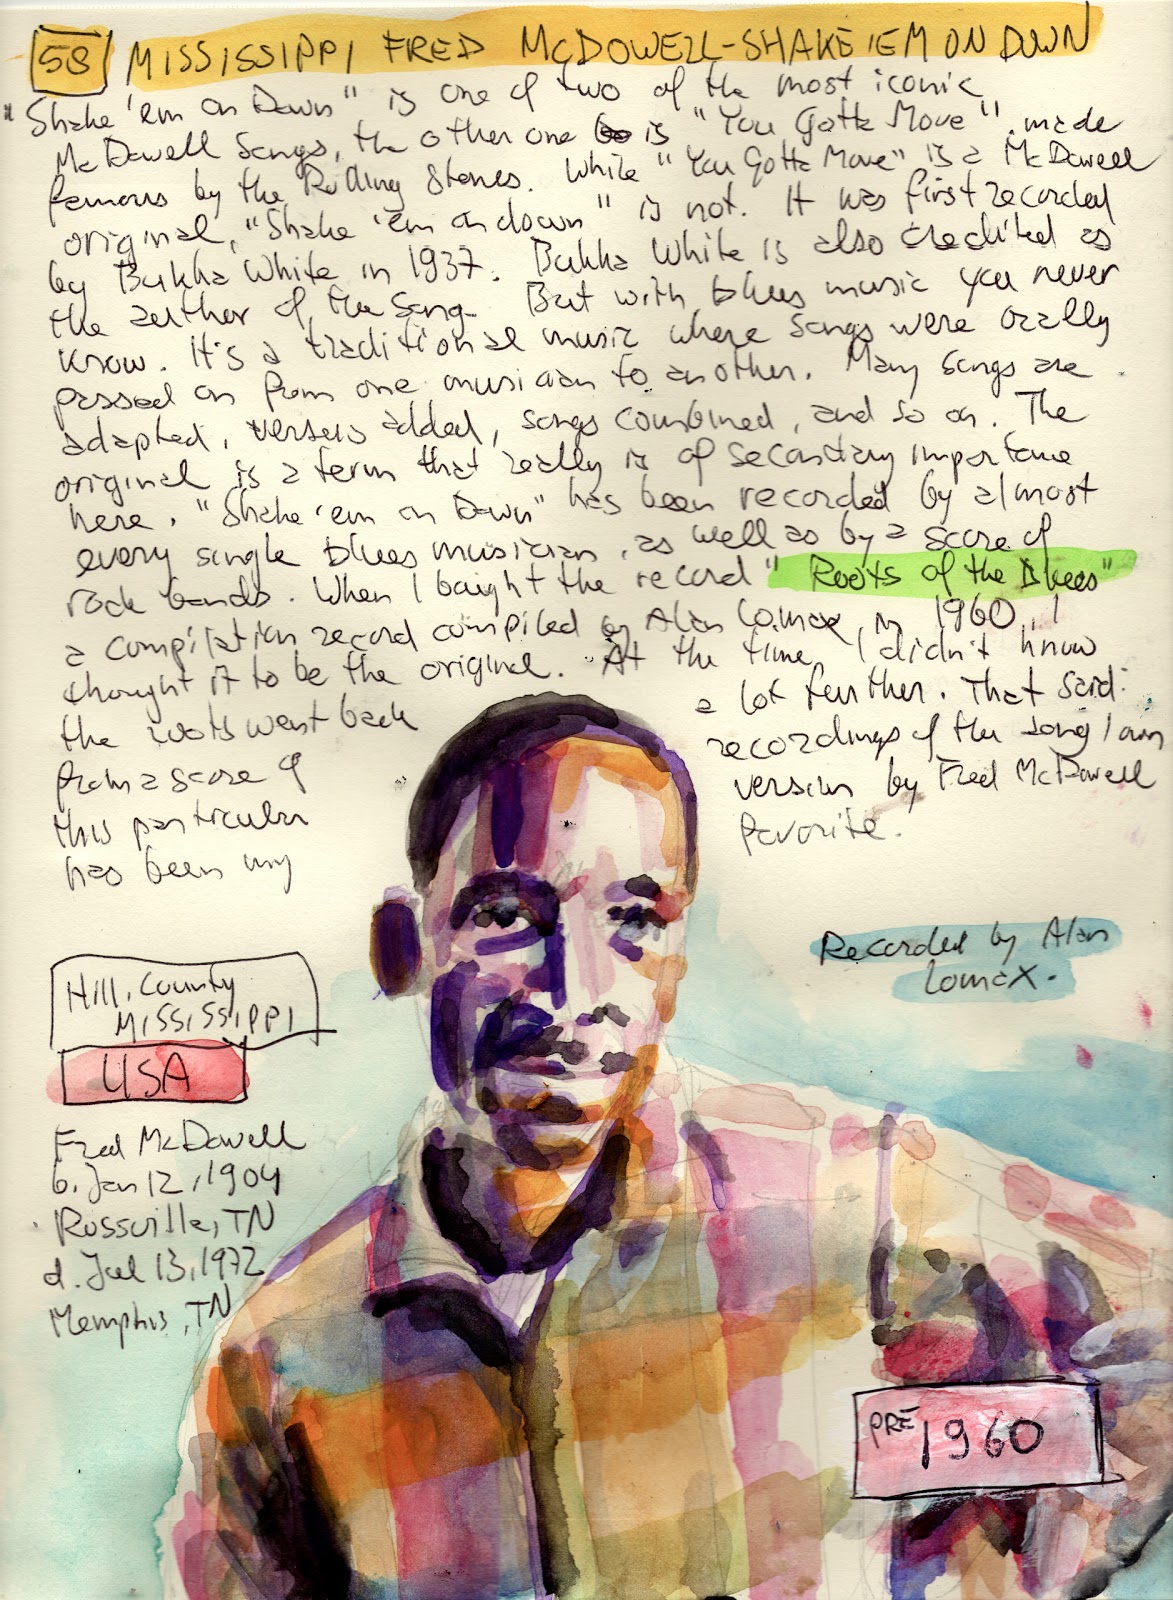 58 MISSISSIPPI FRED McDOWELL-SHAKE 'EM ON DOWN
"Shake 'em on Down" is one of two of the most iconic
McDowell songs, the other one is "You Gotta Move" made
famous by the Rolling Stones. While "You Gotta Move" is a McDowell
original, "Shake 'em on down" is not. It was first recorded
by Bukka White in 1937. Bukka White is also credited as
the author of the song. But with blues music you never
know. It's a traditional music where songs were orally
passed on from one musician to another. Many songs are
adapted, verses added, songs combined, and so on. The
original is a term that really is of secondary importance
here. "Shake 'em on Down" has been recorded by almost
every single blues musician, as well as by a score of
rock bands. When I bought the record "Roots of the Blues"
a compilation record compiled by Alan Lomax in 1960, I
thought it to be the original. At the time, I didn't know
the roots went back a lot further. That said:
from a score of recordings of the song I own
this particular version by Fred McDowell
has been my favorite.
Recorded by Alan
Lomax.
Hill, County
MISSISSIPPI
USA
Fred McDowell
b. Jan 12, 1904
Rossville, TN
d. Jul 13, 1972
Memphis, TN
PRE 1960